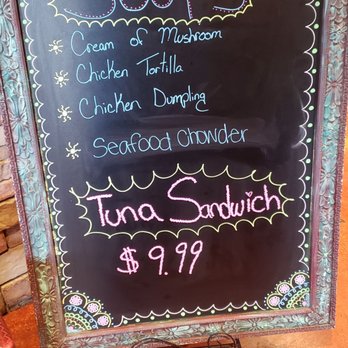 Soups
Cream of Mushroom
Chicken Tortilla
Chicken Dumpling
Seafood Chowder
Tuna Sandwich
$9.99